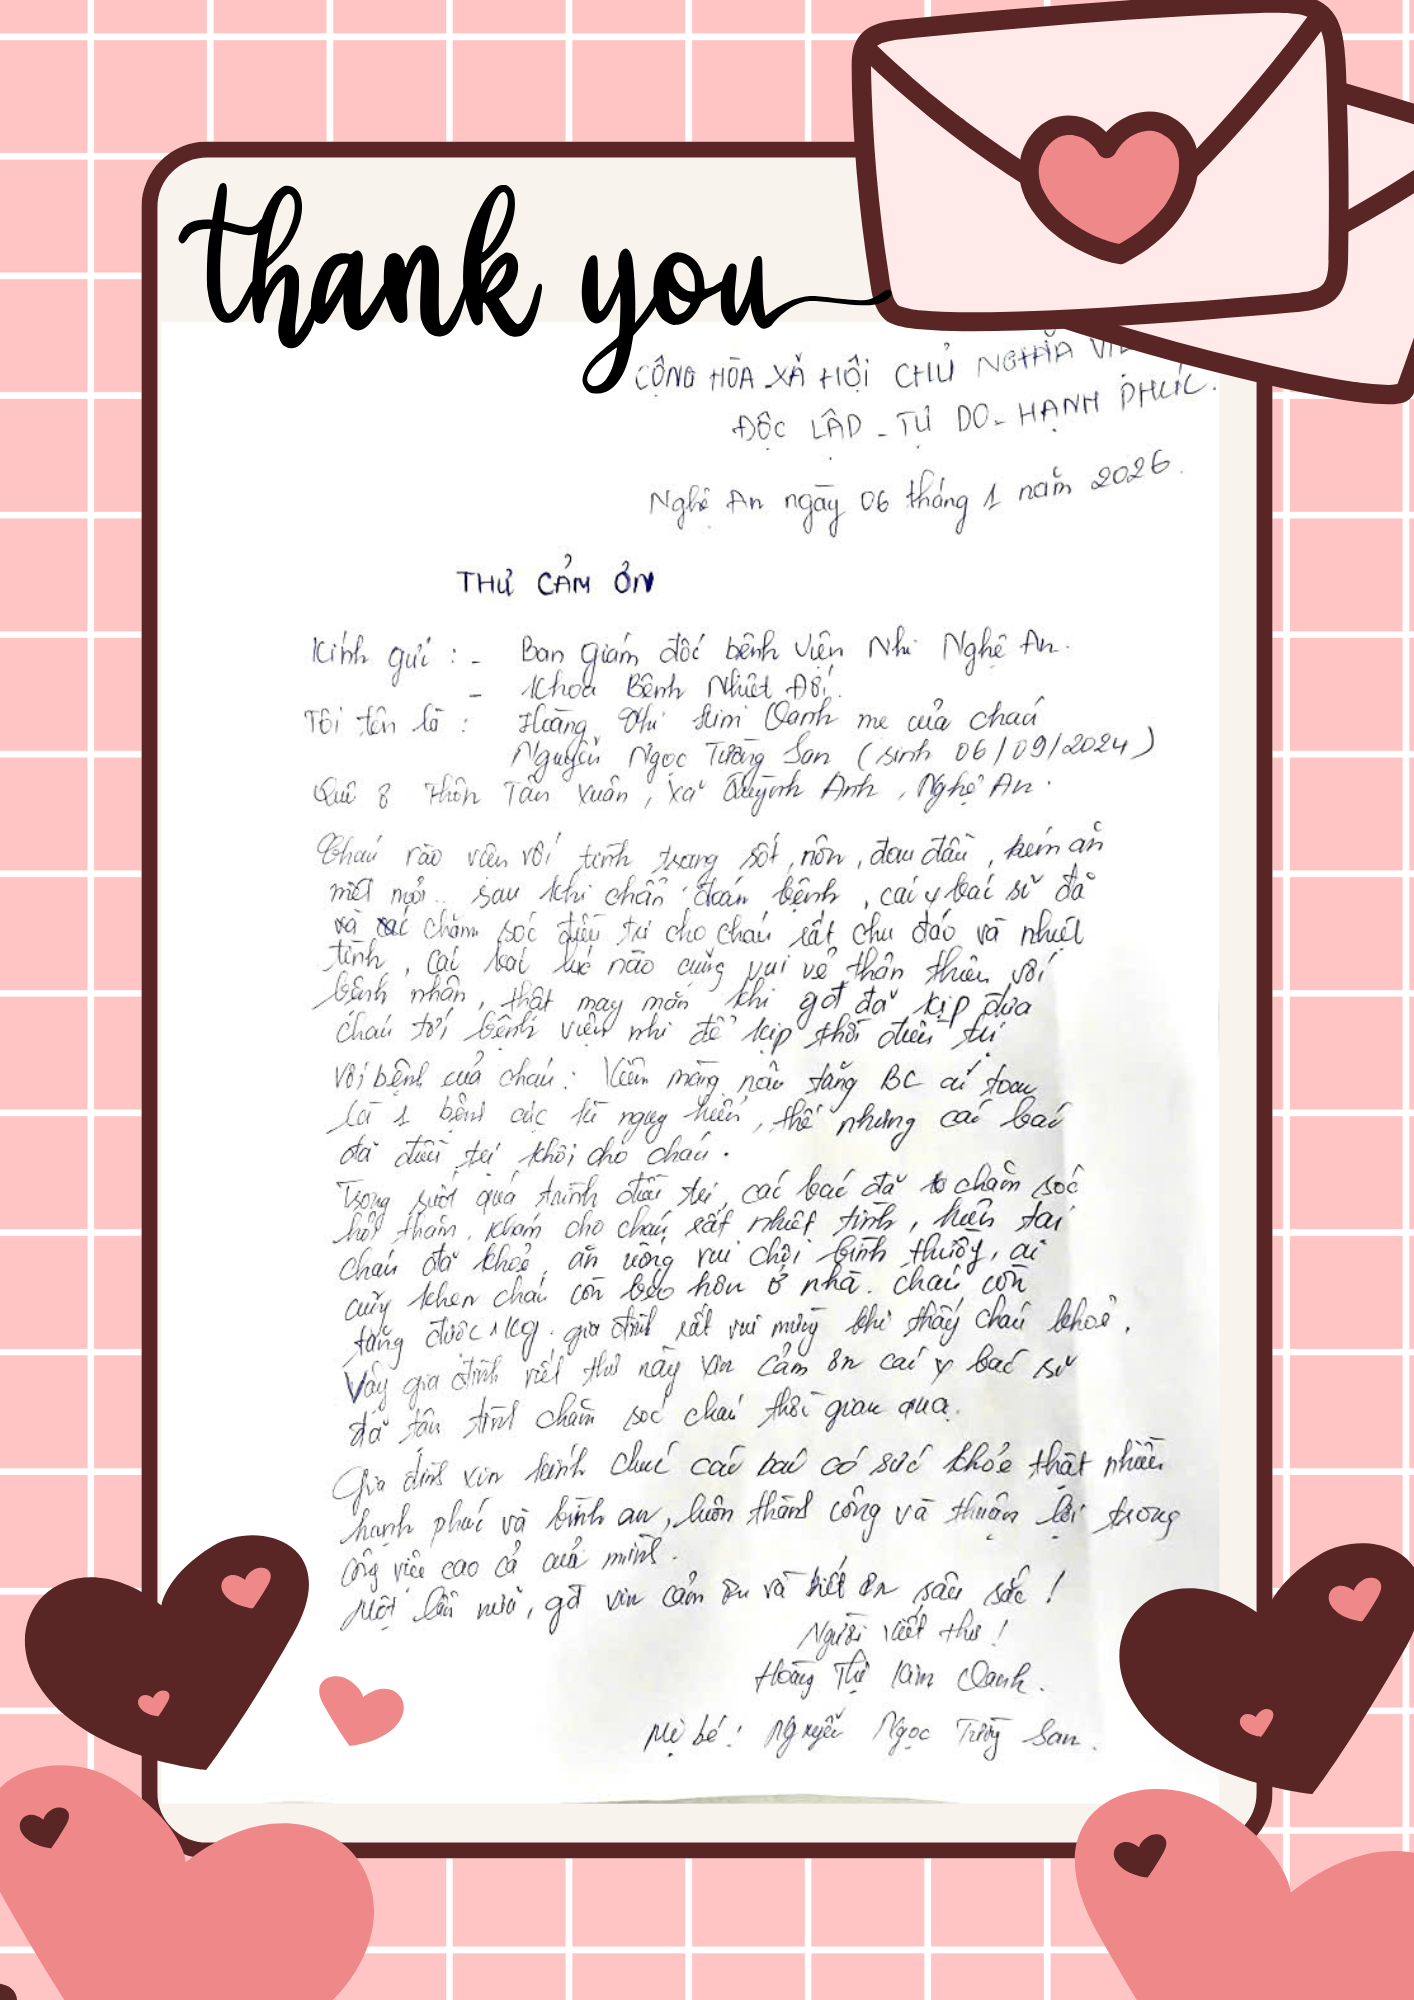 thank you
CỘNG HÒA XÃ HỘI CHỦ NGHĨA VIỆ
ĐỘC LẬP - TỰ DO - HẠNH PHÚC.
Nghệ An ngày 06 tháng 1 năm 2026.
THƯ CẢM ƠN
Kính gửi : - Ban giám đốc bệnh viện Nhi Nghệ An.
- Khoa Bệnh Nhiệt Đới.
Tôi tên là : Hoàng Thị Kim Oanh mẹ của cháu
Nguyễn Ngọc Tường San (sinh 06/09/2024)
Quê 8 thôn Tân Xuân, xã Quỳnh Anh, Nghệ An.
Cháu vào viện với tình trạng sốt, nôn, đau đầu, kém ăn
mệt mỏi.. sau khi chẩn đoán bệnh, các y bác sĩ đã
và chăm sóc điều trị cho cháu rất chu đáo và nhiệt
tình, các bác lúc nào cũng vui vẻ thân thiện với
bệnh nhân, thật may mắn khi gđ đã kịp đưa
cháu tới bệnh viện nhi để kịp thời điều trị
với bệnh của cháu: Viêm màng não tăng BC ái toan
là 1 bệnh cực kì nguy hiểm, thế nhưng các bác
đã điều trị khỏi cho cháu.
Trong suốt quá trình điều trị, các bác đã chăm sóc
hỏi thăm, khám cho cháu rất nhiệt tình, hiện tại
cháu đã khoẻ, ăn uống vui chơi bình thường, ai
cũng khen cháu còn béo hơn ở nhà. cháu còn
tăng được 1kg. gia đình rất vui mừng khi thấy cháu khoẻ.
Vậy gia đình viết thư này xin cảm ơn các y bác sĩ
đã tận tình chăm sóc cháu thời gian qua.
Gia đình xin kính chúc các bác có sức khỏe thật nhiều
hạnh phúc và bình an, luôn thành công và thuận lợi trong
công việc cao cả của mình.
Một lần nữa, gđ xin cảm ơn và biết ơn sâu sắc!
Người viết thư!
Hoàng Thị Kim Oanh.
Mẹ bé: Nguyễn Ngọc Tường San.